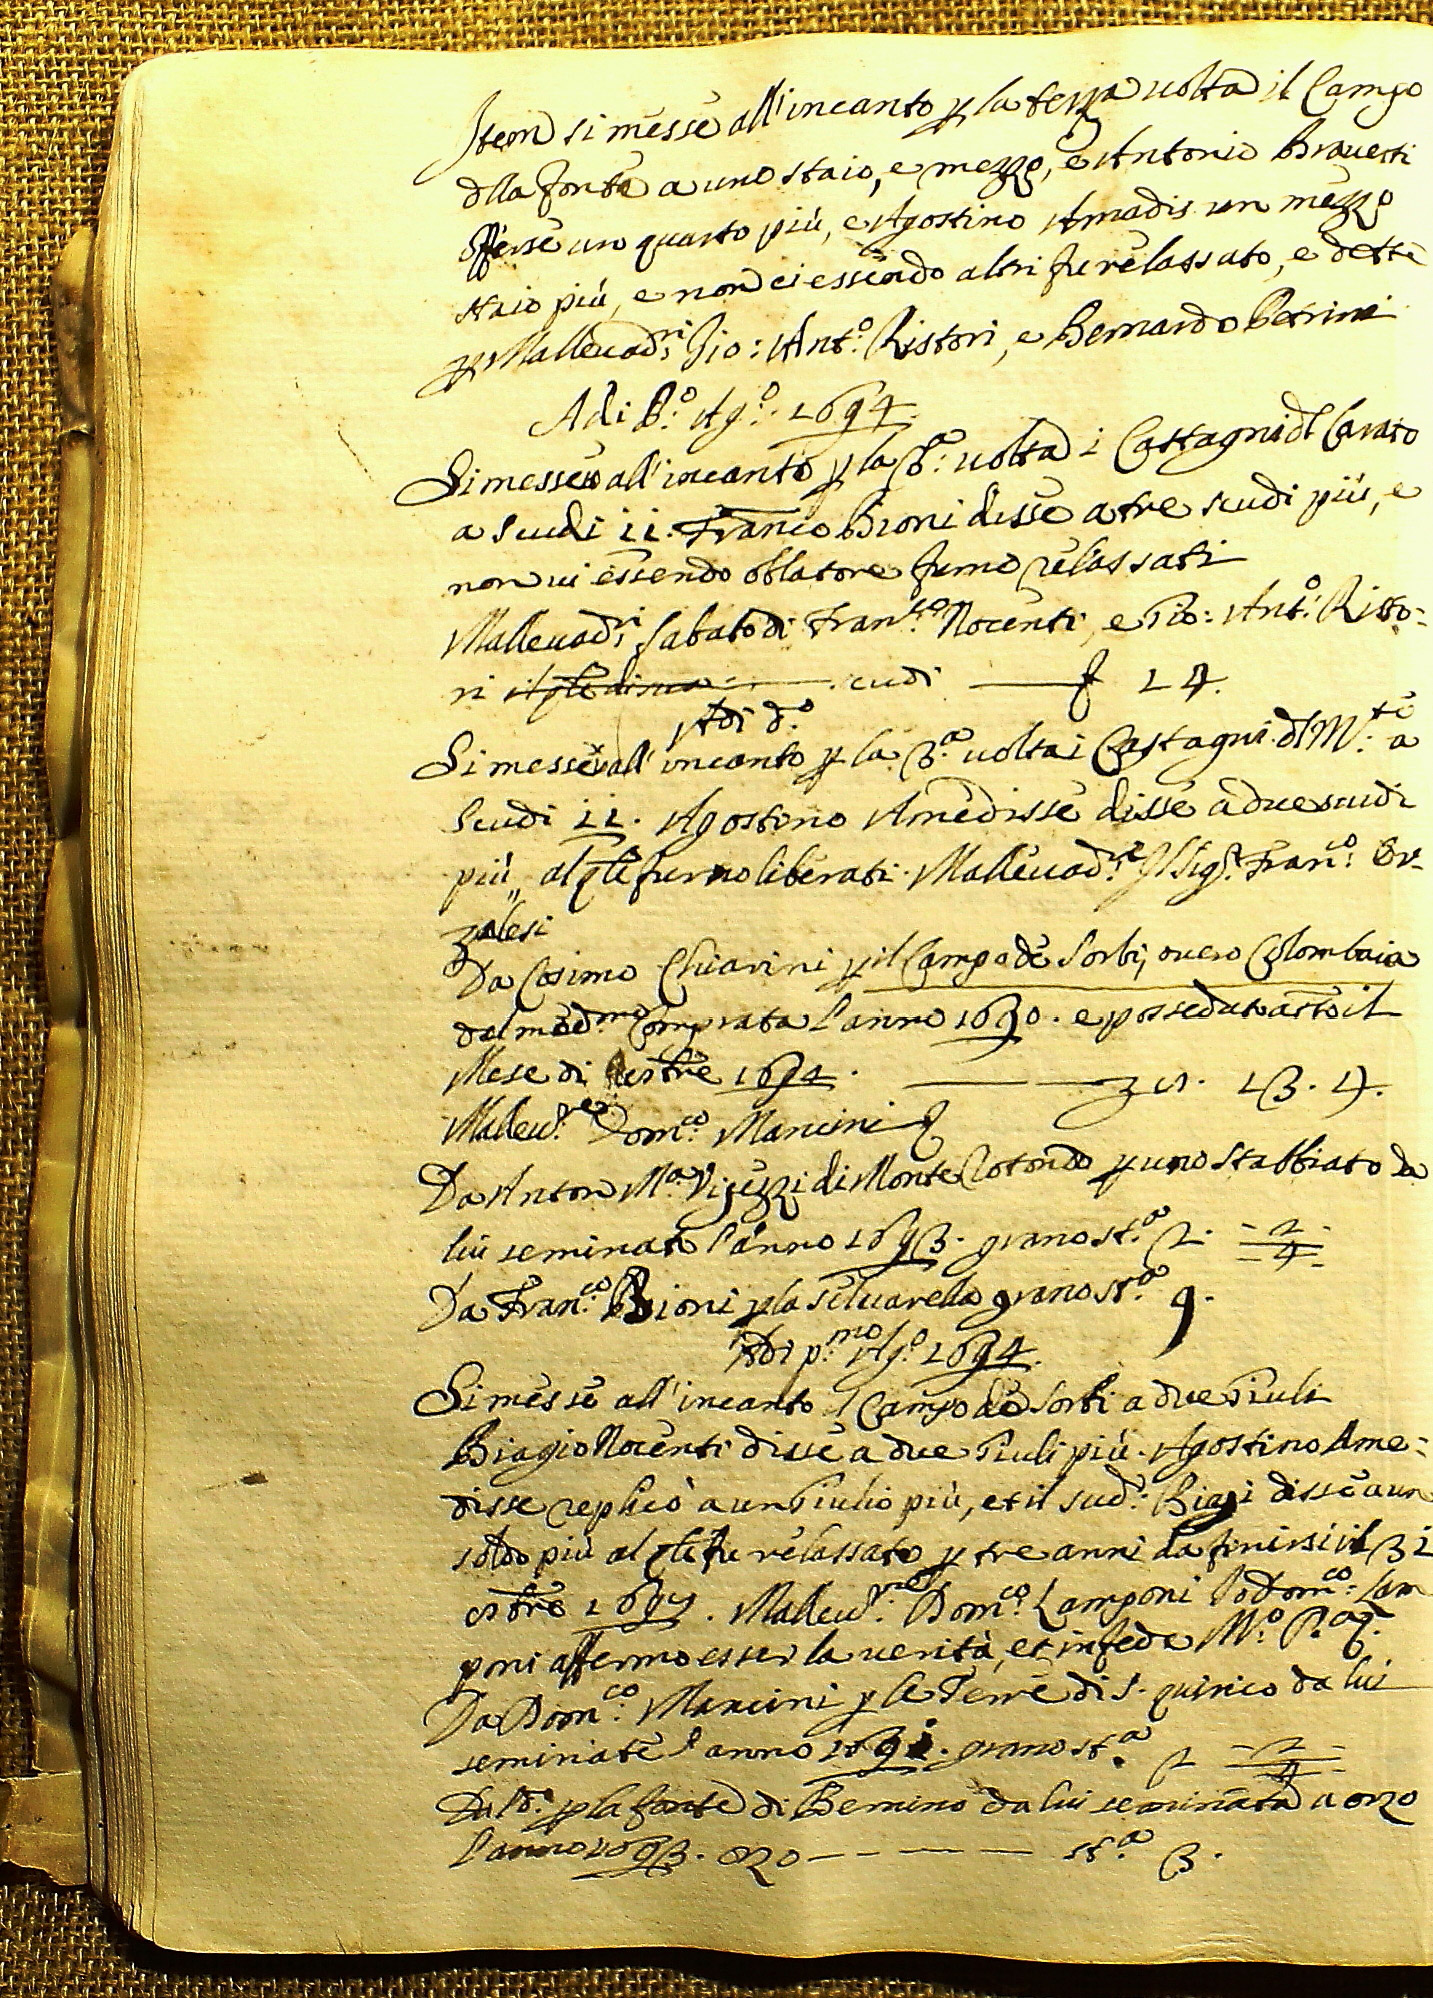 Item si messe all'incanto p la terza uolta il Campo
dlla fonte a uno staio, e mezzo, e Antonio Brauesti
offerse un quarto più, e Agostino Amadis un mezzo
staio più, e non ci essendo altri fu relassato, e dette
p Malleuad.ri Gio: Ant.o Ristori, e Bernardo Petrini
Adi p.o Ag.o 1694.
Si messe all'incanto p la 3.a uolta i Castagni dl Cavato
a scudi 11. Franco Bioni disse a tre scudi più, e
non ui essendo oblatore furno relassati
Malleuad.ri Sabato di Fran.co Nocenti, e Gio: Ant.o Risto-
ri scudi 14.
Adi d.o
Si messe all'incanto p la 3.a uolta i Castagni dl M.te a
Scudi 11. Agostino Amedisse disse a due scudi
più, al qle furno liberati. Malleuad.re Il Sig.r Fran.o Or-
zalesi
Da Cosimo Chiarini p il Campo de Sorbi, ouero Colombaia
dal med.mo Comprata l'anno 1690. e posseduta tto il
Mese di 1694. 13. 4.
Malleu.re Dom.co Mancini
Da Anton M.a Vigezzi di Monte Rotondo p uno stabbiato da
lui seminato l'anno 1693. grano st.a 2. 2/4
Da Fran.co Bioni p la Seluarella grano st.a 9.
Adi p.mo Ag.o 1694.
Si messe all'incanto il Campo de Sorbi a due Giuli
Biagio Nocenti disse a due Giuli più. Agostino Ame-
disse replicò a un Giulio più, et il sud.o Biagi disse a un
soldo più al qle fu relassato p tre anni da finirsi il 31
1697. Malleu.re Dom.co Lamponi Io Dom.co Lam
poni affermo esser la uerità, et in fede M.o P.a
Da Dom.co Mancini p le Terre di S. quirico da lui
seminate l'anno 1691. grano st.a 2 2/4
Dal d.o p la fonte di Bernino da lui seminata a orzo
l'anno 1693. orzo - - - - st.a 3.